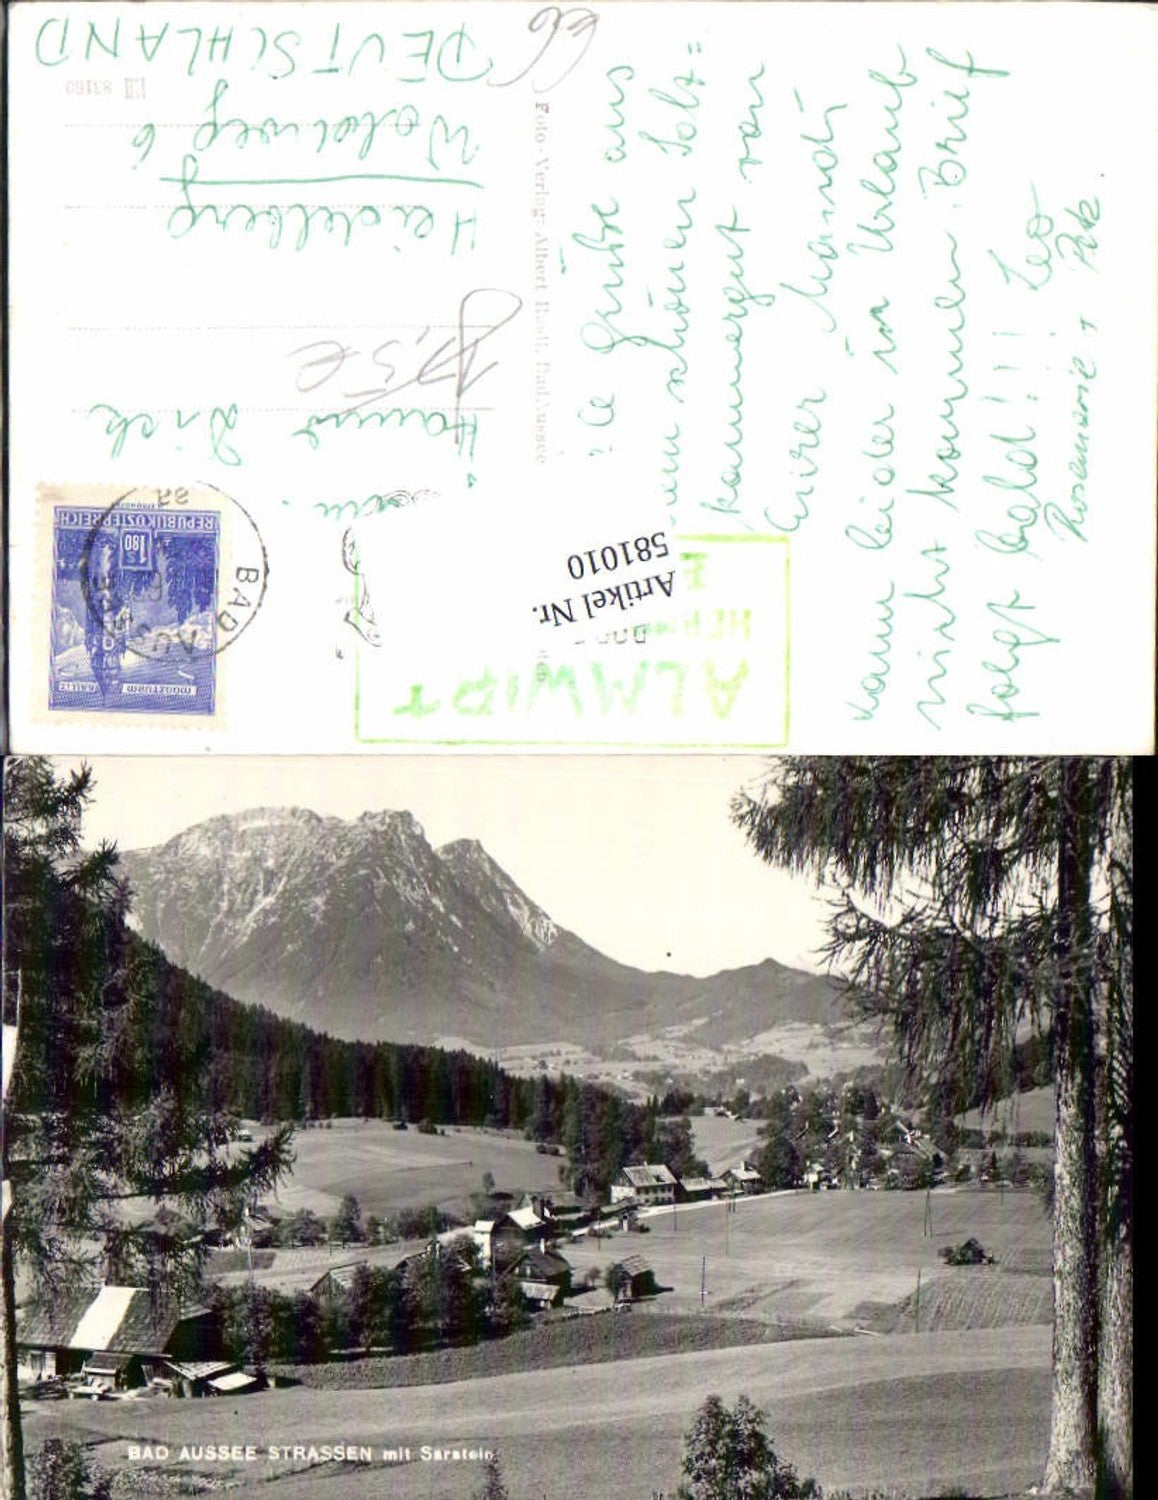 Grüße aus
schönen Salz=
kammergut von
Eurer Mandi
kann leider im Urlaub
nicht kommen. Brief
folgt bald!!! Leo
Rosemarie +
Foto-Verlag: Albert Rastl, Bad Aussee
66
Hanne Dick
17,5 e
Heidelberg
Waldweg 6
83160
DEUTSCHLAND
REPUBLIK ÖSTERREICH
S 1.80
MÜNZTURM HALL I. T.
BAD AUSSEE
ALMWIRT
Artikel Nr.
581010
BAD AUSSEE STRASSEN mit Sarstein